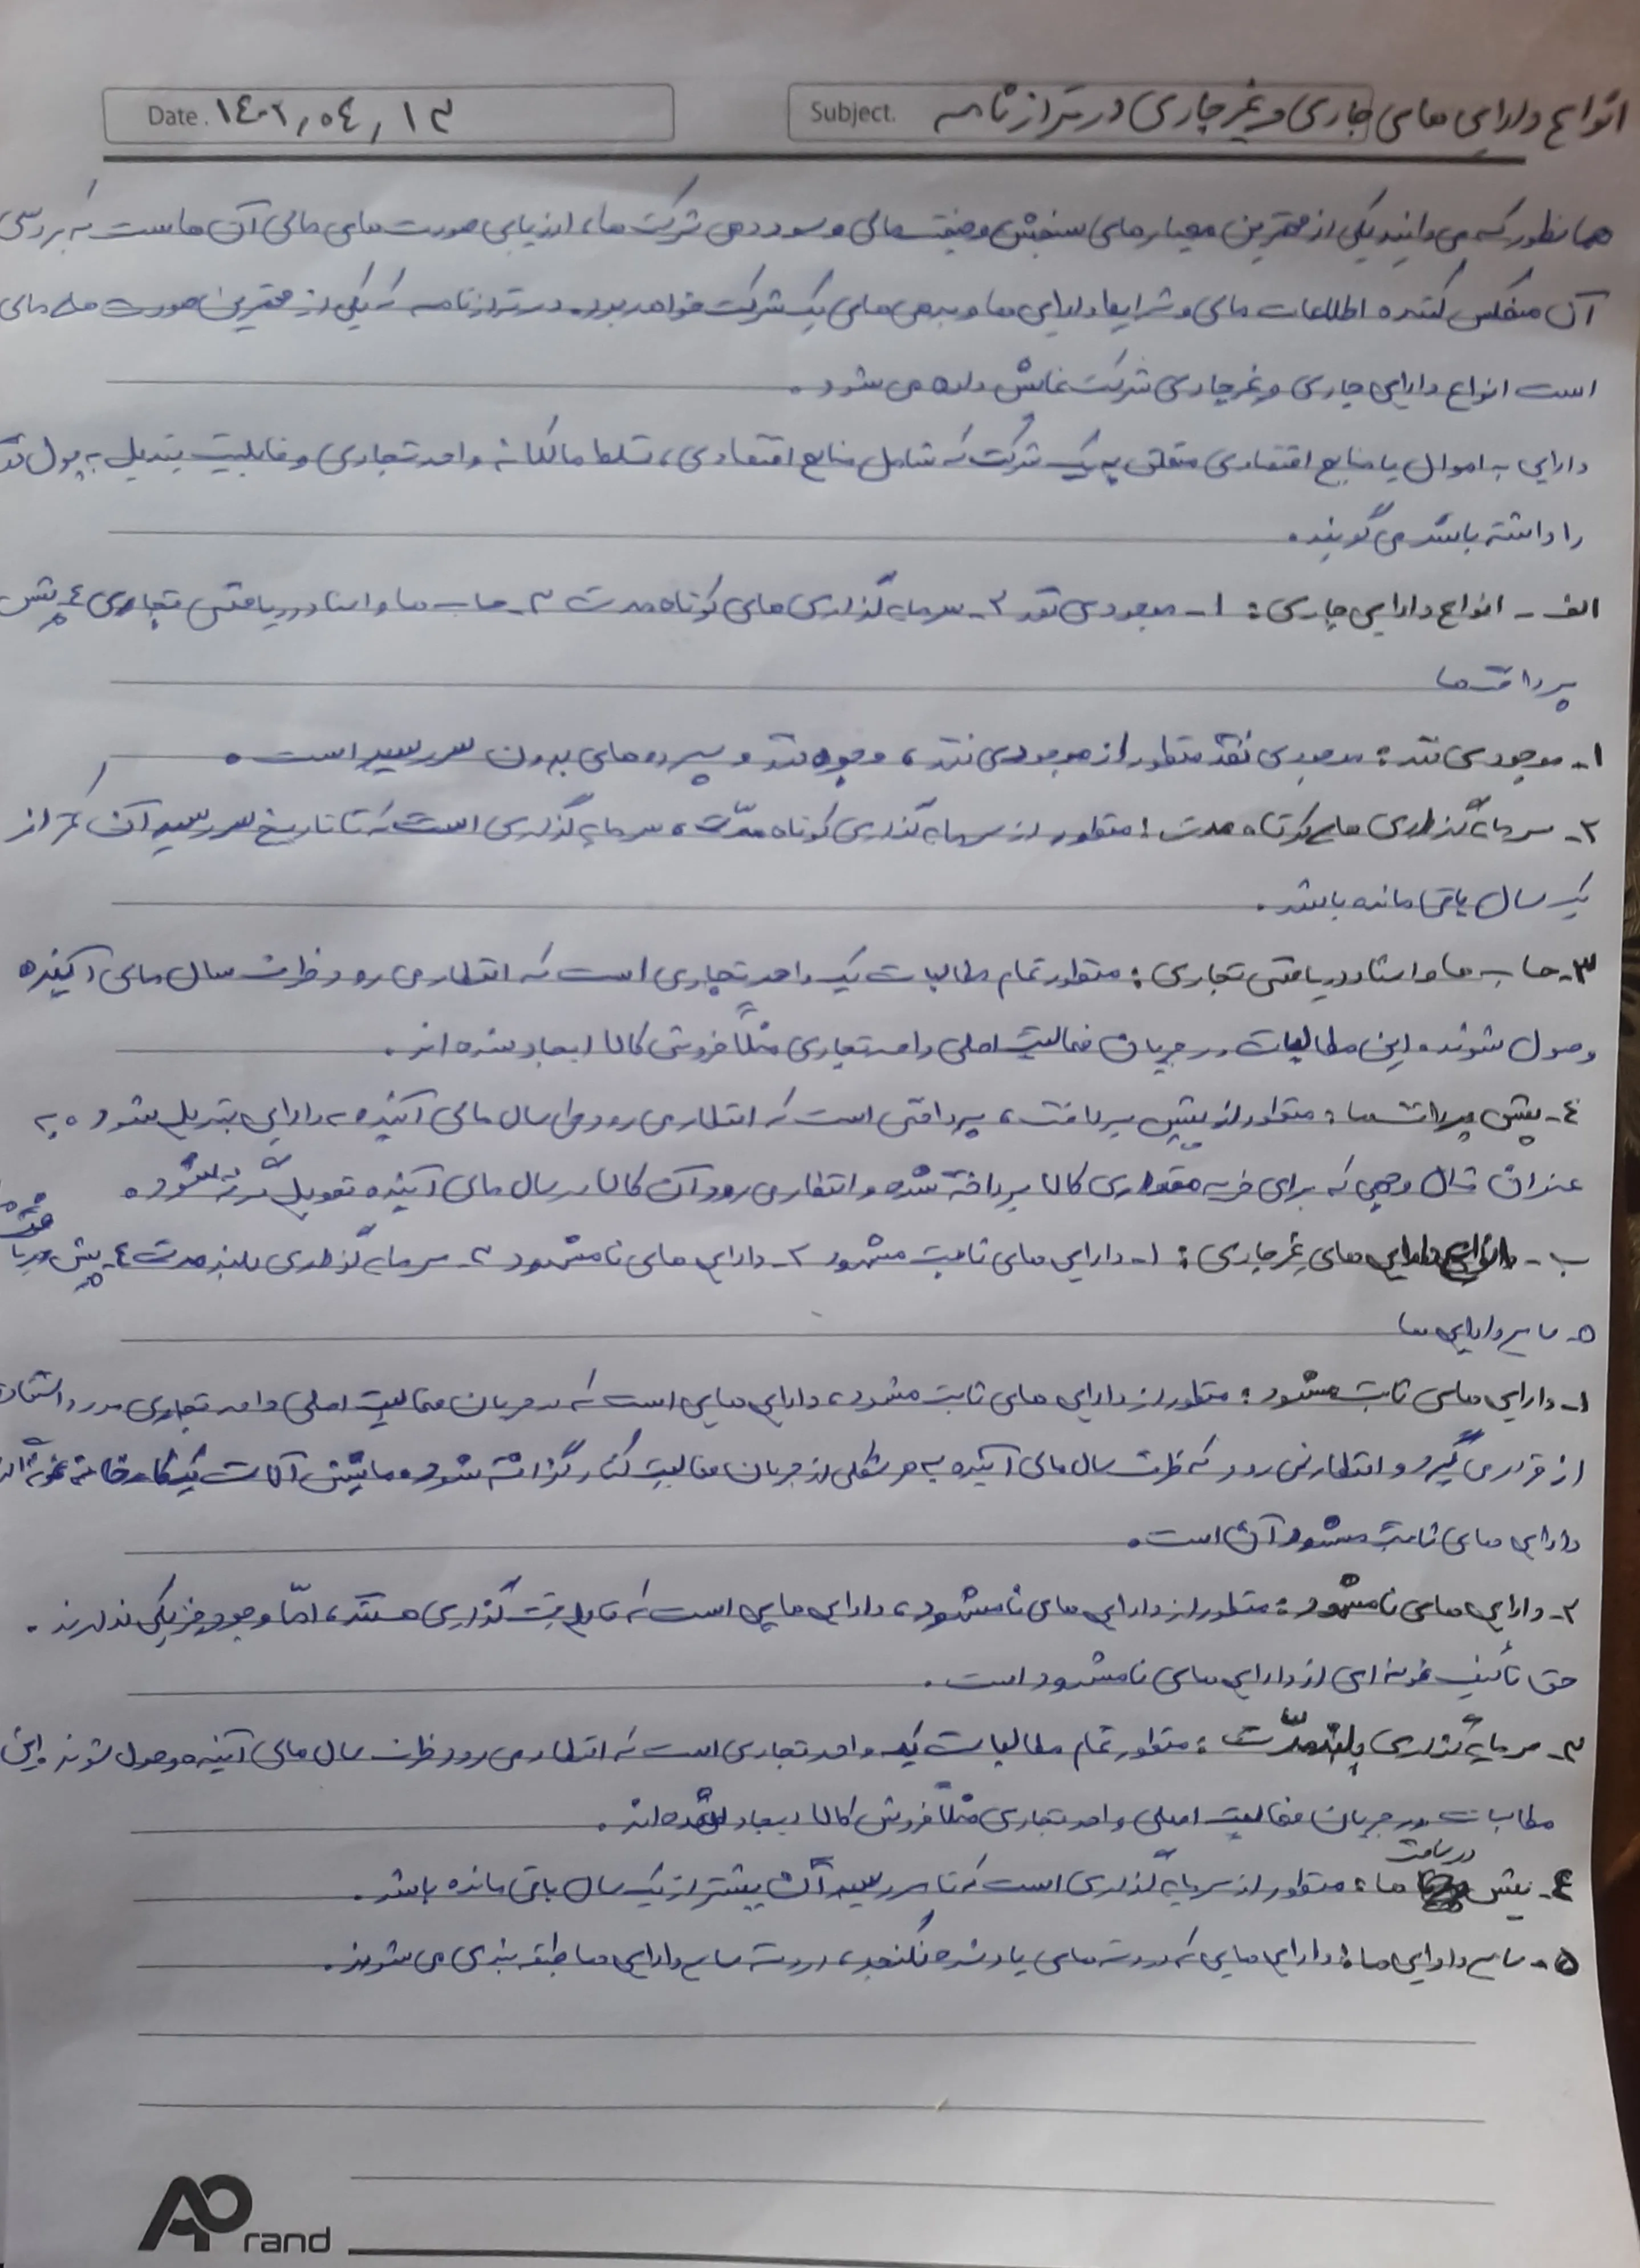 انواع دارایی های جاری و غیر جاری در ترازنامه
Subject.
Date. ۱۴۰۲,۰۴,۱۳
همانطور که می دانید یکی از مهمترین معیارهای سنجش وضعیت مالی و سوددهی شرکت ها، ارزیابی صورت های مالی آن هاست که بررسی
آن منعکس کننده اطلاعات مالی و شرایط دارایی ها و بدهی های یک شرکت خواهد بود. در ترازنامه که یکی از مهمترین صورت های مالی
است انواع دارایی جاری و غیر جاری شرکت نمایش داده می شود.
دارایی به اموال یا منابع اقتصادی متعلق به یک شرکت که شامل منابع اقتصادی، تسلط مالکانه واحد تجاری و قابلیت تبدیل به پول
را داشته باشد می گویند.
الف - انواع دارایی جاری: ۱- موجودی نقد ۲- سرمایه گذاری های کوتاه مدت ۳- حساب ها و اسناد دریافتنی تجاری ۴- پیش
پرداخت ها
۱- موجودی نقد: موجودی نقد منظور از موجودی نقد، وجوه نقد و سپرده های بدون سررسید است.
۲- سرمایه گذاری های کوتاه مدت: منظور از سرمایه گذاری کوتاه مدّت، سرمایه گذاری است که تا تاریخ سررسید آن کمتر از
یک سال باقی مانده باشد.
۳- حساب ها و اسناد دریافتنی تجاری: منظور تمام مطالبات یک واحد تجاری است که انتظار می رود ظرف سال مالی آینده
وصول شوند. این مطالبات در جریان فعالیت اصلی واحد تجاری مثلاً فروش کالا ایجاد شده اند.
۴- پیش پرداخت ها: منظور از پیش پرداخت، پرداختی است که انتظار می رود طی سال مالی آینده به دارایی تبدیل شود. به
عنوان مثال وجهی که برای خرید مقداری کالا پرداخته شده و انتظار می رود آن کالا در سال مالی آینده تحویل گرفته شود.
ب - دارایی های غیر جاری: ۱- دارایی های ثابت مشهود ۲- دارایی های نامشهود ۳- سرمایه گذاری بلند مدت ۴- پیش
۵- سایر دارایی ها
۱- دارایی های ثابت مشهود: منظور از دارایی های ثابت مشهود، دارایی هایی است که در جریان فعالیت اصلی واحد تجاری مورد استفاده
از قرار می گیرد و انتظار نمی رود که ظرف سال مالی آینده به هر شکلی از جریان فعالیت کنار گذاشته شود. ماشین آلات یک کارخانه نمونه
دارایی های ثابت مشهود آن است.
۲- دارایی های نامشهود: منظور از دارایی های نامشهود، دارایی هایی است که قابل قیمت گذاری هستند، امّا وجود فیزیکی ندارند.
حق تألیف نمونه ای از دارایی های نامشهود است.
۳- سرمایه گذاری بلندمدّت: منظور تمام مطالبات یک واحد تجاری است که انتظار می رود ظرف سال مالی آینده وصول شوند. این
مطالبات در جریان فعالیت اصلی واحد تجاری مثلاً فروش کالا ایجاد شده اند.
۴- پیش دریافت ها: منظور از سرمایه گذاری است که تا سررسید آن بیشتر از یک سال باقی مانده باشد.
۵- سایر دارایی ها: دارایی هایی که در دسته های یاد شده نگنجد، در دسته سایر دارایی ها طبقه بندی می شوند.
APrand